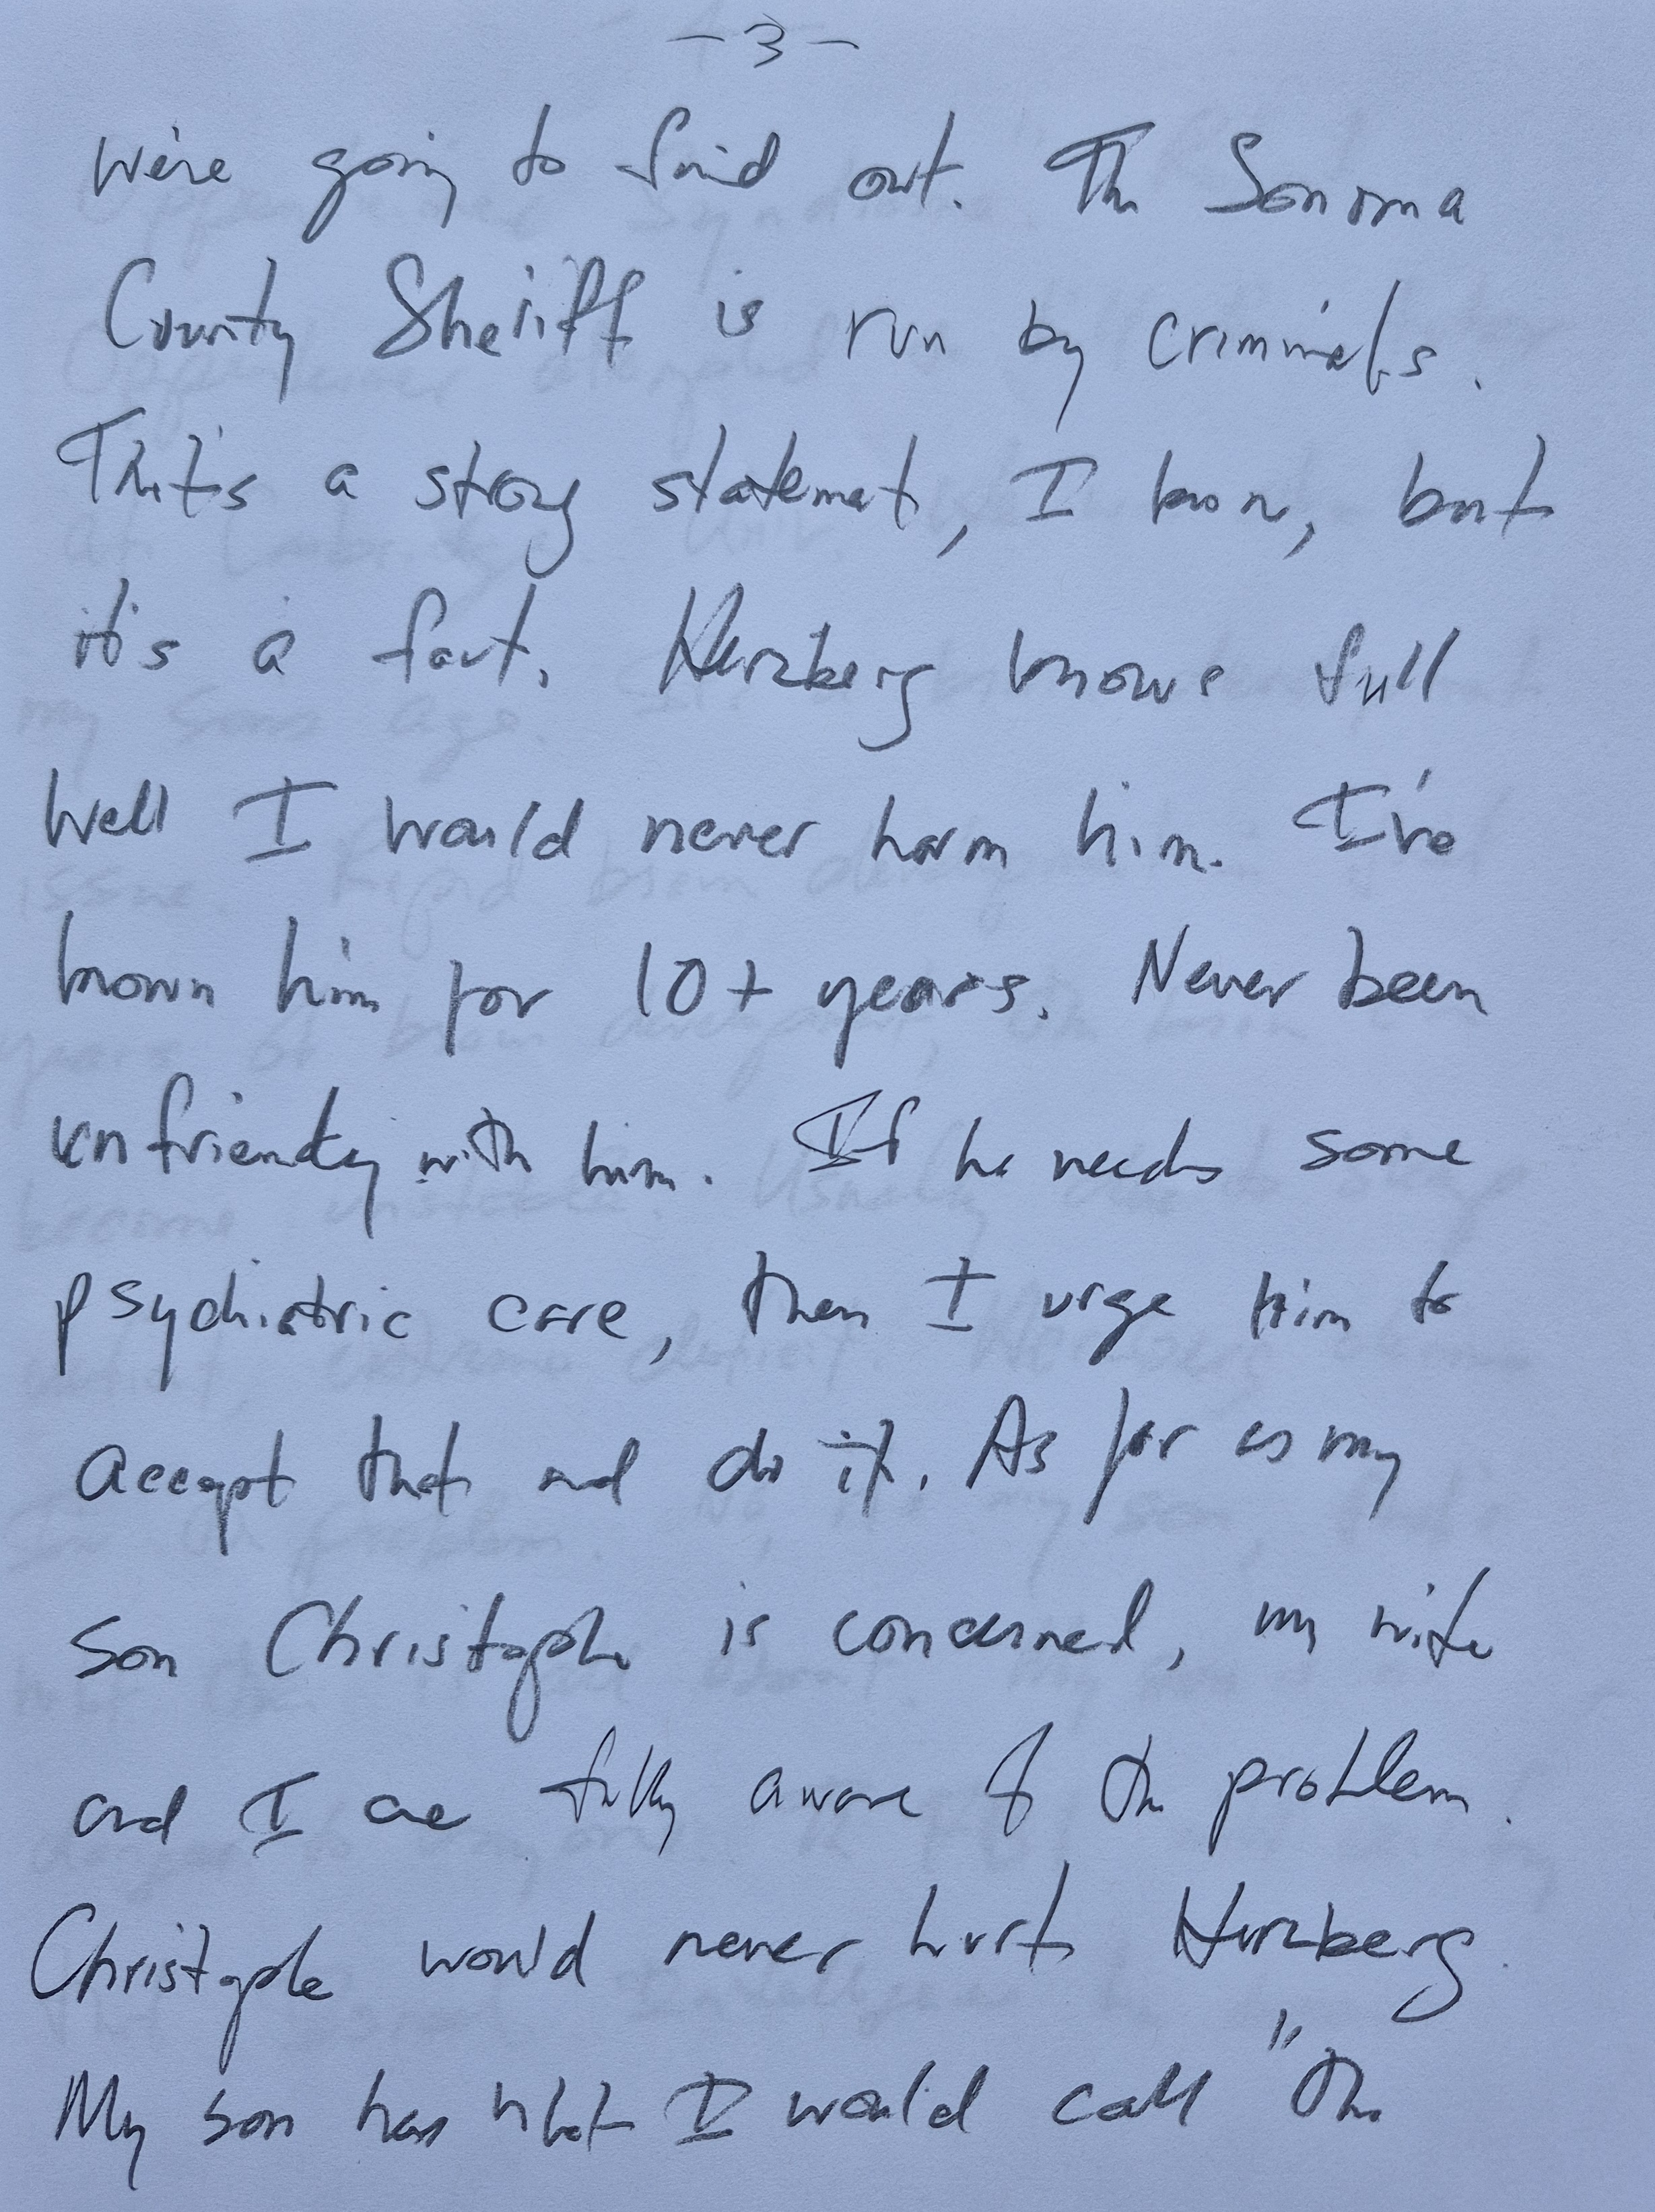 -3-
We're going to find out. The Sonoma
County Sheriff is run by criminals.
That's a strong statement, I know, but
it's a fact. Herzberg knows full
well I would never harm him. I've
known him for 10+ years. Never been
unfriendly with him. If he needs some
psychiatric care, then I urge him to
accept that and do it. As far as my
son Christophe is concerned, my wife
and I are fully aware of the problem.
Christophe would never hurt Herzberg.
My son has what I would call "the